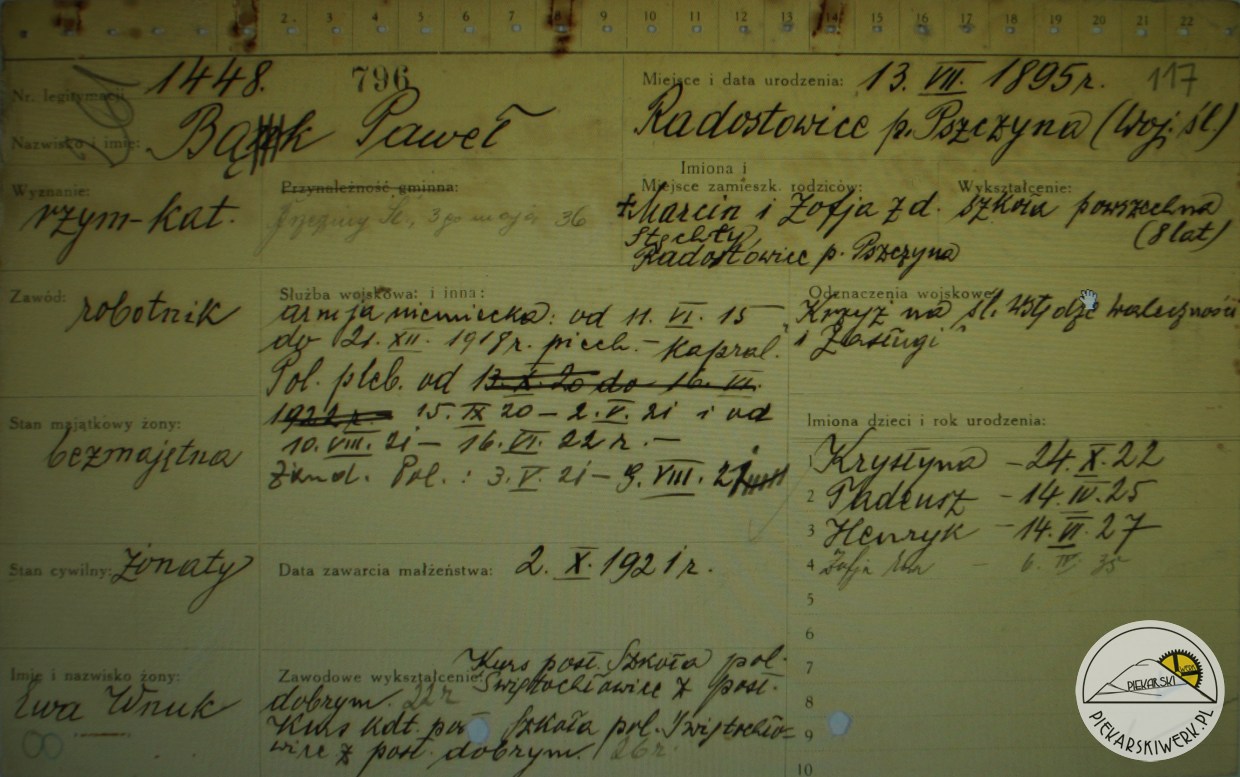 1 2 3 4 5 6 7 8 9 10 11 12 13 14 15 16 17 18 19 20 21 22
Nr. legitymacji 1448. 796
Nazwisko i imię: Bąk Paweł
Miejsce i data urodzenia: 13. VII. 1895 r. 117
Radostowice p. Pszczyna (Woj. śl.)
Wyznanie:
rzym-kat.
Przynależność gminna:
3 go maja 36
Imiona i
Miejsce zamieszk. rodziców:
+ Marcin i Zofja z d.
Radostowice p. Pszczyna
Wykształcenie:
szkoła powszechna
(8 lat)
Zawód: robotnik
Służba wojskowa: i inna:
armja niemiecka: od 11. VI. 15
do 21. XII. 1918 r. piech. – Kapral.
Pol. pleb. od 13. X. 20 do 16. VI.
1922 r. 15. IX 20 – 2. V. 21 i od
10. VIII. 21 – 16. VI. 22 r. –
Pol.: 3. V. 21 – 9. VIII. 21
Odznaczenia wojskowe:
Krzyż na śl. wstędze waleczności
i Zasługi
Stan majątkowy żony:
bezmajętna
Imiona dzieci i rok urodzenia:
1 Krystyna – 24. X. 22
2 Tadeusz – 14. IV. 25
3 Henryk – 14. VI. 27
4 Zofja – 6. IV. 35
5
6
7
8
9
10
Stan cywilny: żonaty
Data zawarcia małżeństwa: 2. X. 1921 r.
Imię i nazwisko żony:
Ewa Wnuk
Zawodowe wykształcenie: Kurs post. Szkoła pol.
Świętochłowice z post.
dobrym. 22 r
Kurs kdt. Szkoła pol. Świętochło-
wice z post. dobrym. 26 r.
PIEKARSKI WERK
PIEKARSKIWERK.PL